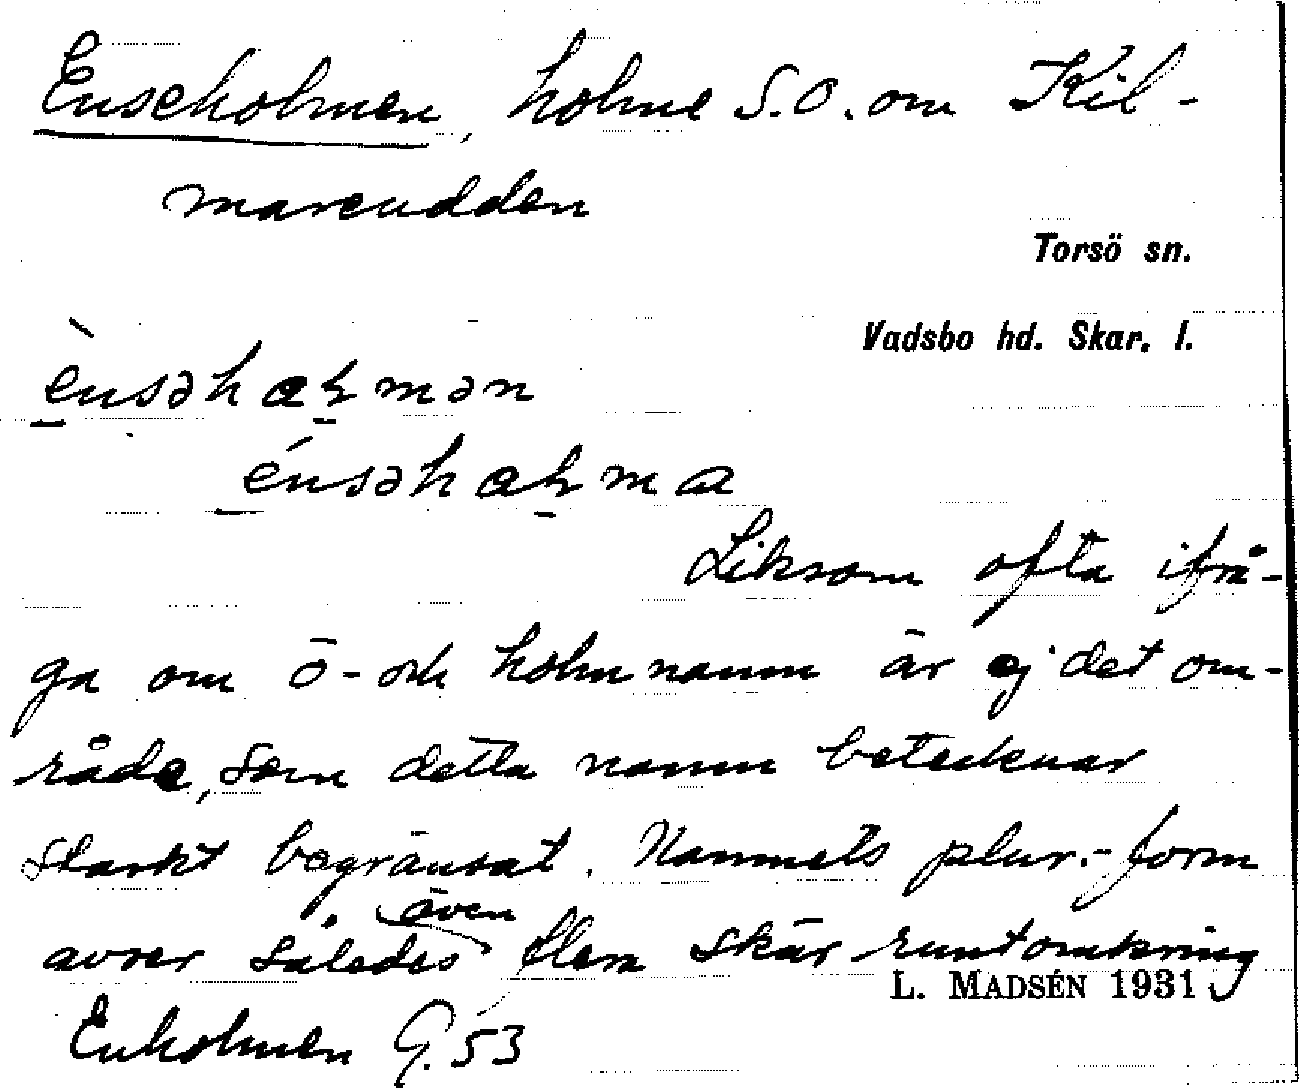 Enseholmen, holme S.O. om Kil-
mareudden
Torsö sn.
Vadsbo hd. Skar. l.
Liksom ofta ifrå-
ga om ö- och holmnamn är ej det om-
råde, som detta namn betecknar
starkt begränsat. Namnets plur.-form
även
avser således flera skär runtomkring
L. MADSÉN 1931
Enholmen G. 53